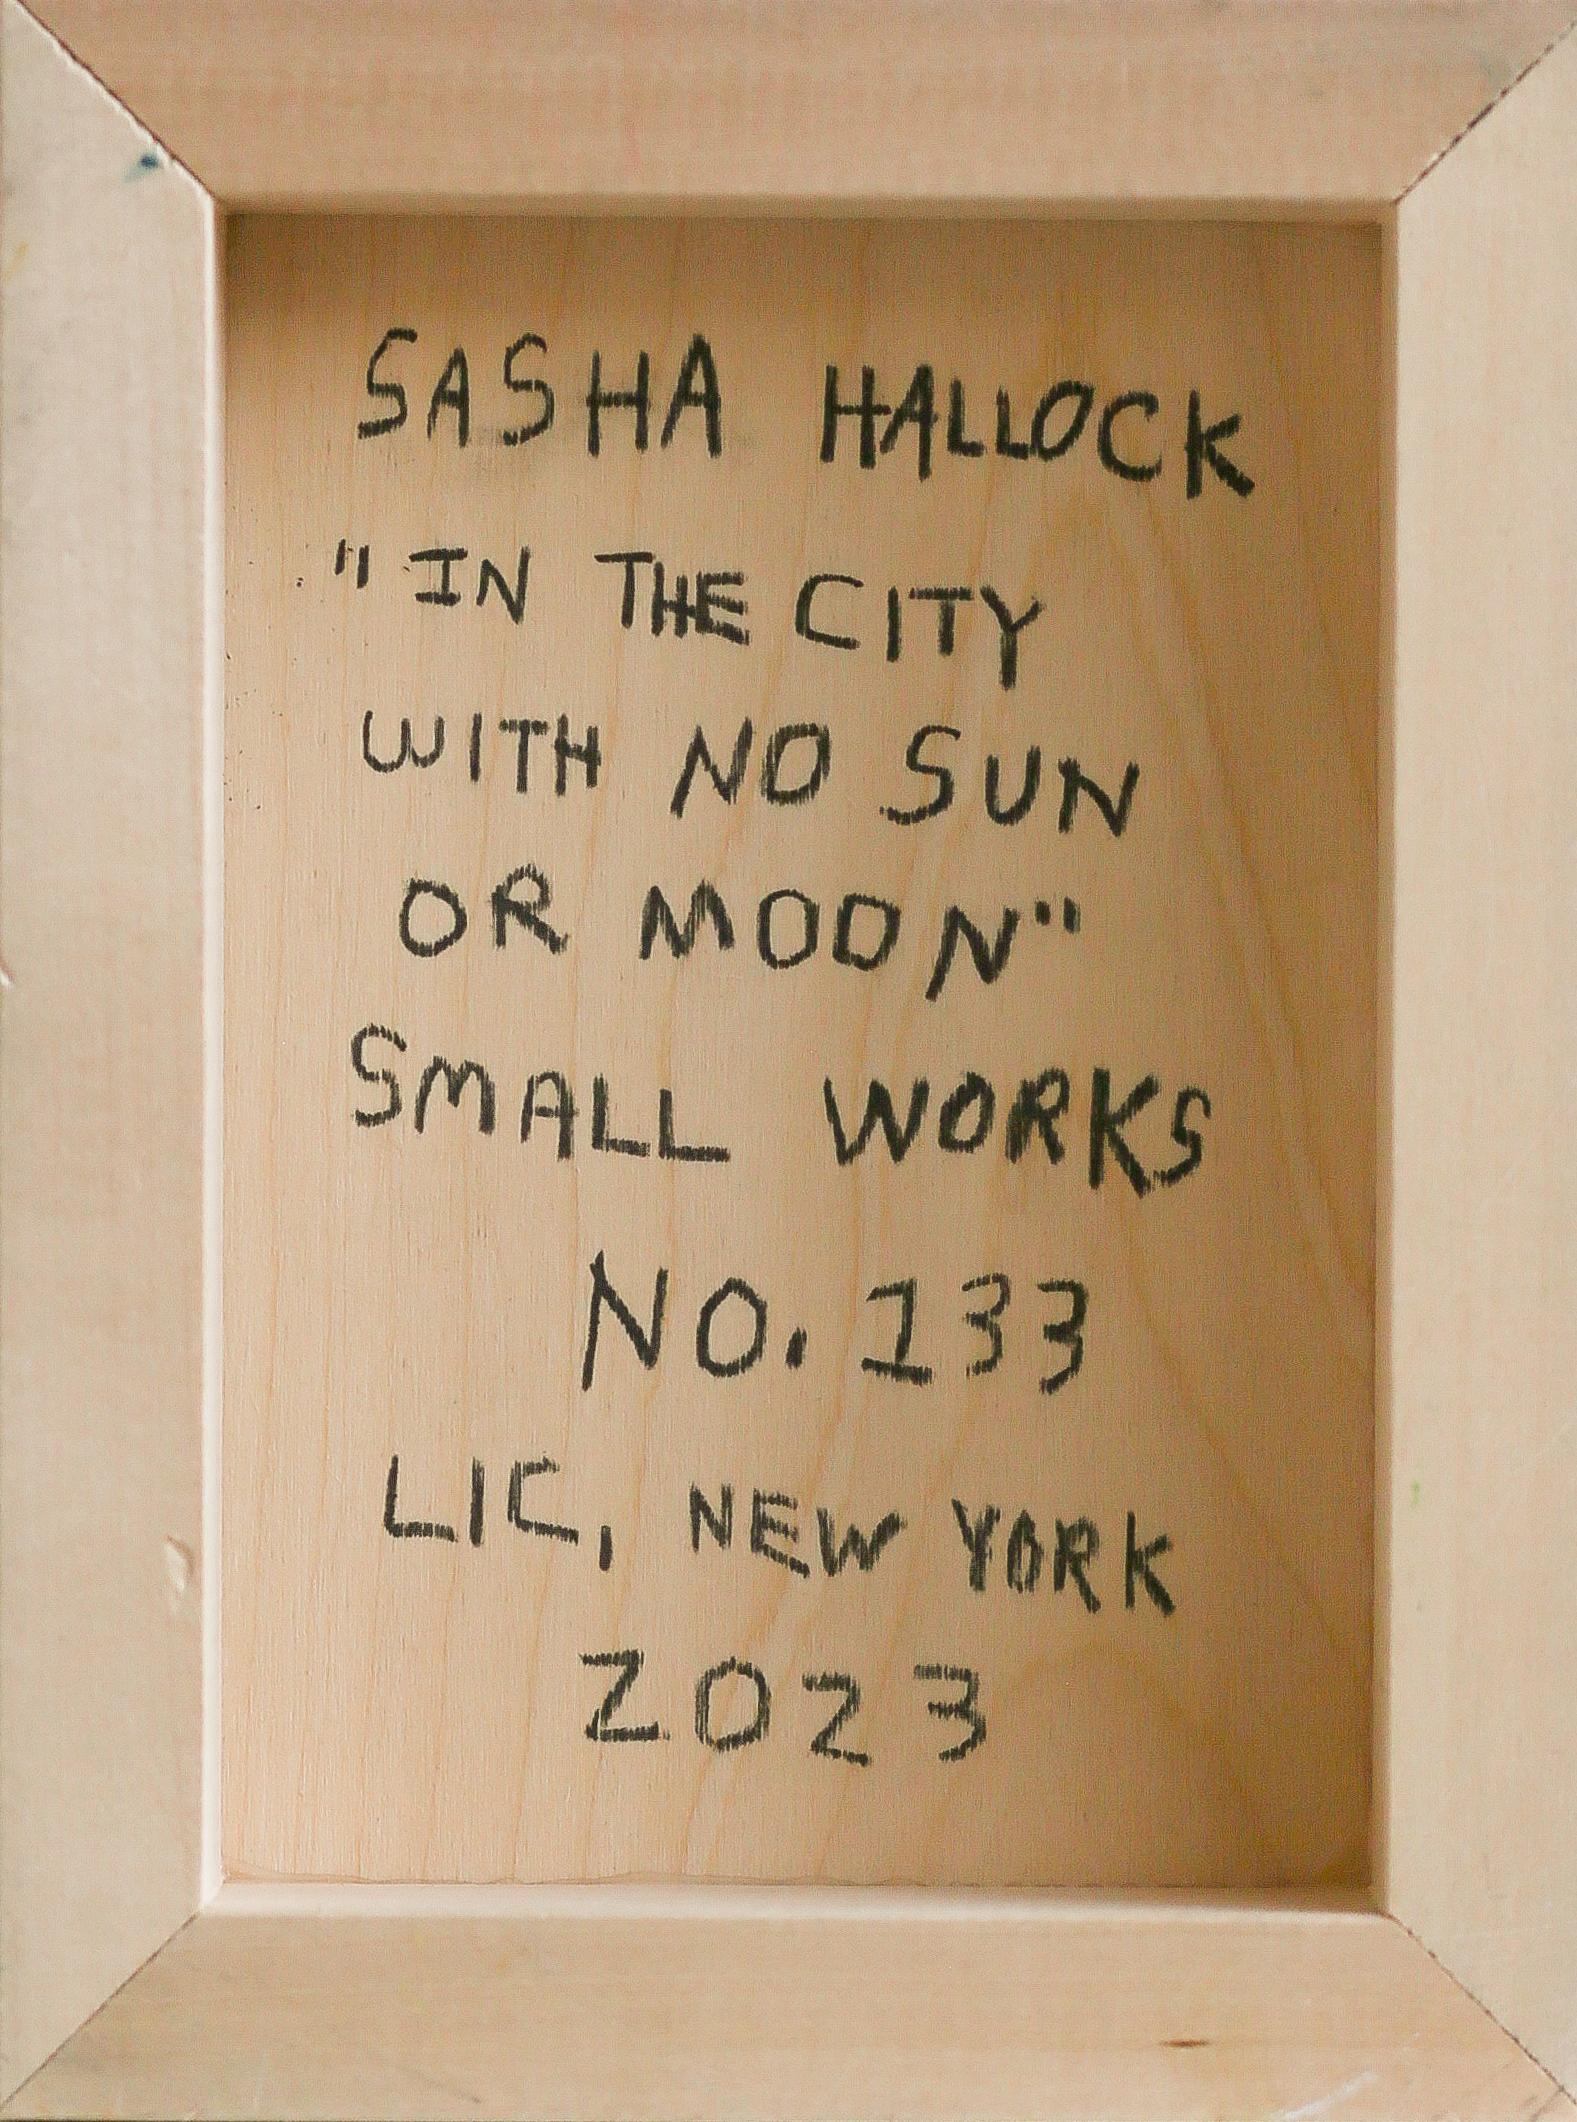 SASHA HALLOCK
"IN THE CITY
WITH NO SUN
OR MOON"
SMALL WORKS
NO. 133
LIC, NEW YORK
2023